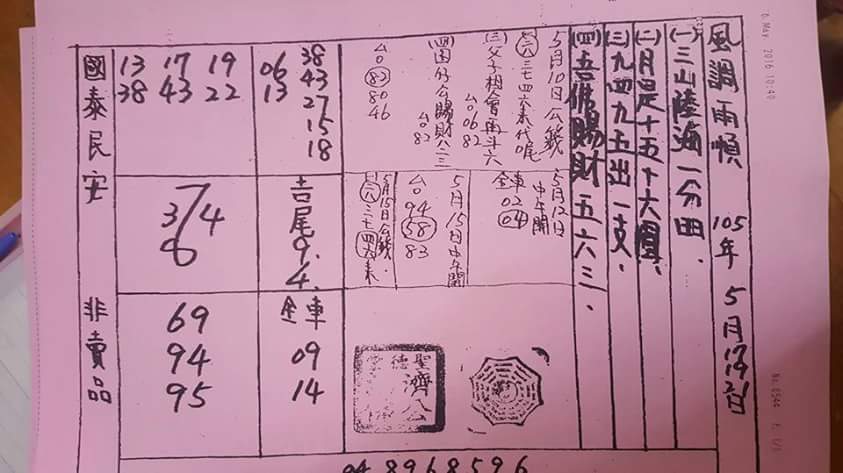 6. May. 2016 10:40
No. 8544 P. 1/1
風調雨順 105年 5月17 19 21日
(一)三山陸海一分田、
(二)月是十五十六圓、
(三)九四九五出一支、
(四)吾佛賜財 五六三、
5月10日公籤
(三)父子相會兩斗六
台 06 82
(四)國仔公賜財八二三
台 82
台 82 80 46
5月12日
中午開
全車 02 04
5月15日中午開
台 94 58 83
5月15日公籤
38 43 27 15 18
06 13
吉尾 9. 4.
全車
09
14
13 17 19
38 43 22
7
3 4
6
69
94
95
國泰民安 非賣品
聖德
濟公
04 8968596